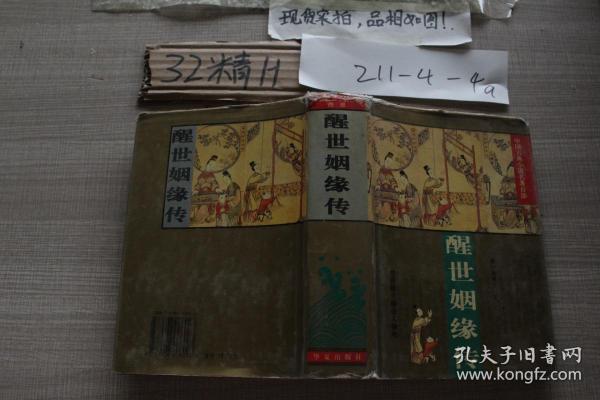 现货实拍，品相如图！.
32精H
211-4-4a
醒世姻缘传
醒世姻缘传
华夏出版社
中国古典小说名著百部
醒世姻缘传
孔夫子旧书网
www.kongfz.com